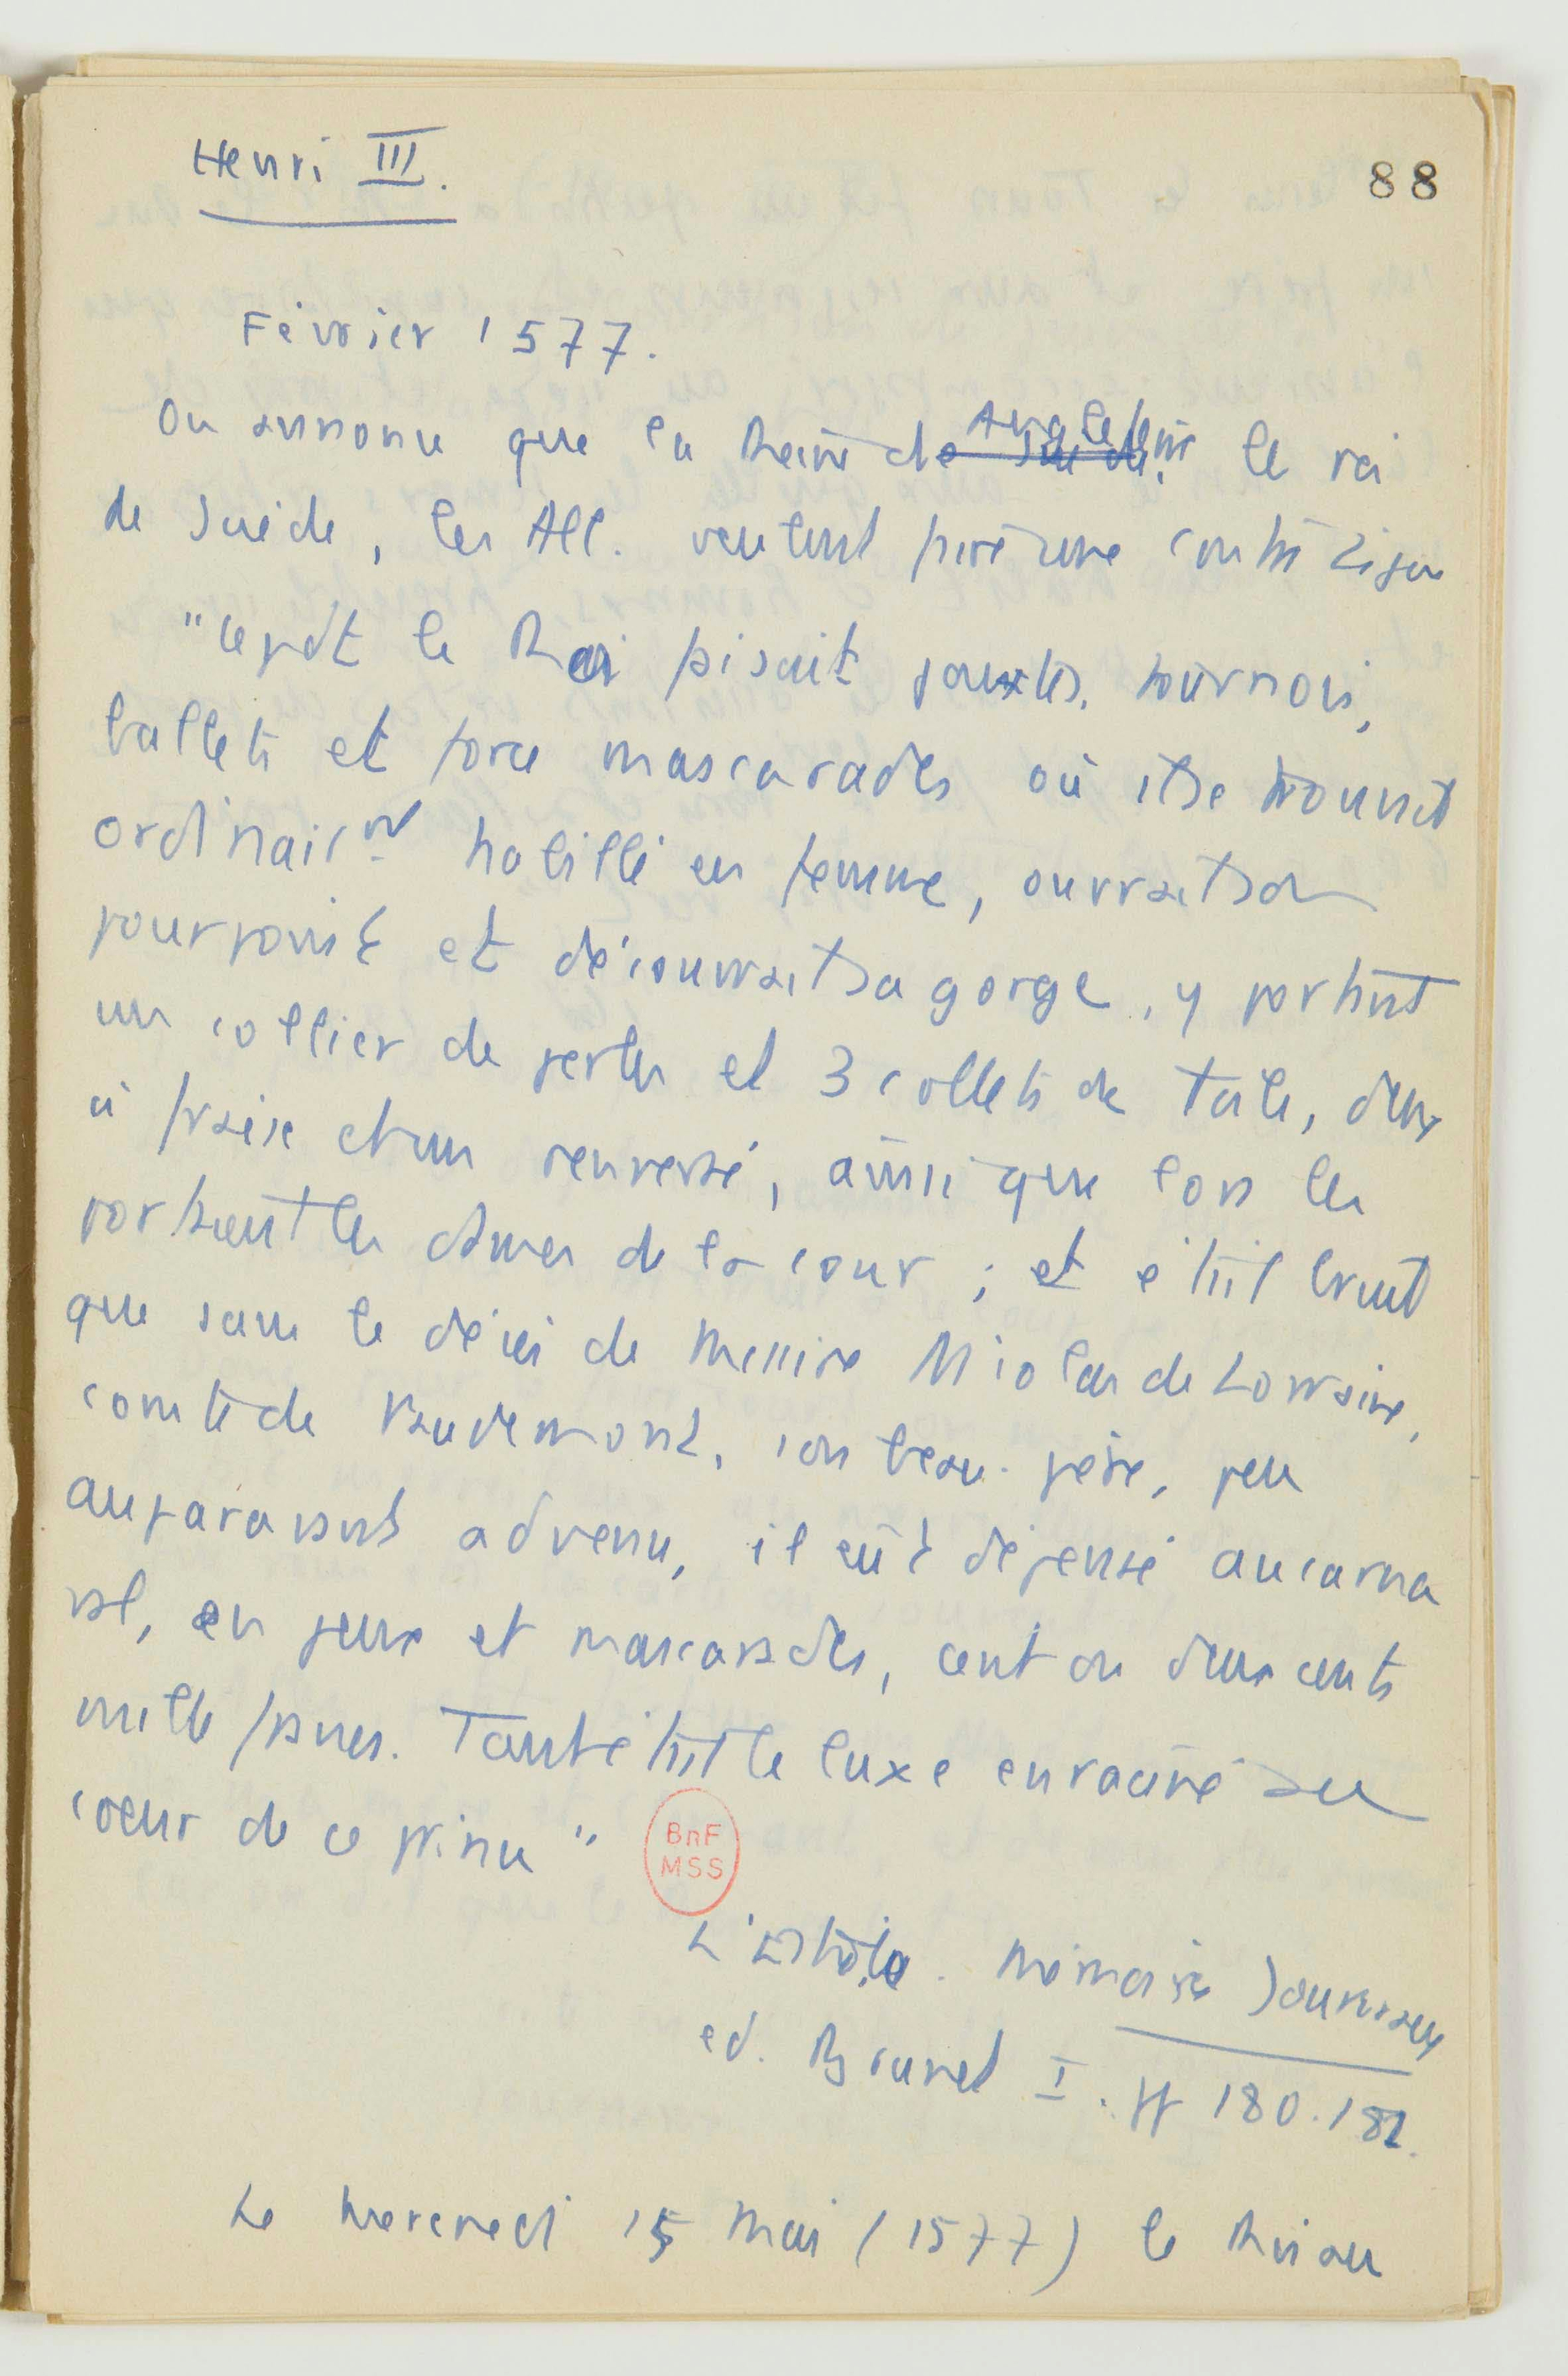 Henri III.
88
Février 1577.
On annonce que la Reine d'Angleterre le roi
de Suède, les All. veulent faire une contre Ligue
"Cepdt le Roi faisait joustes, tournois,
ballets et force mascarades où il se trouvait
ordinairnt habillé en femme, ouvrait son
pourpoint et découvrait sa gorge, y portant
un collier de perles et 3 collets de toile, deux
à fraise et un renversé, ainsi que lors les
portaient les dames de la cour ; et était bruit
que sans le décès de Messire Nicolas de Lorraine,
comte de Vaudemont, son beau-père, peu
auparavant advenu, il eût dépensé au carna
val, en jeux et mascarades, cent ou deux cents
mille francs. Tant était le luxe enraciné au
coeur de ce prince"
BnF
MSS
L'Estoile. Mémoires Journaux
ed. Brunet I. pp 180.181.
Le Mercredi 15 Mai (1577) le Roi au